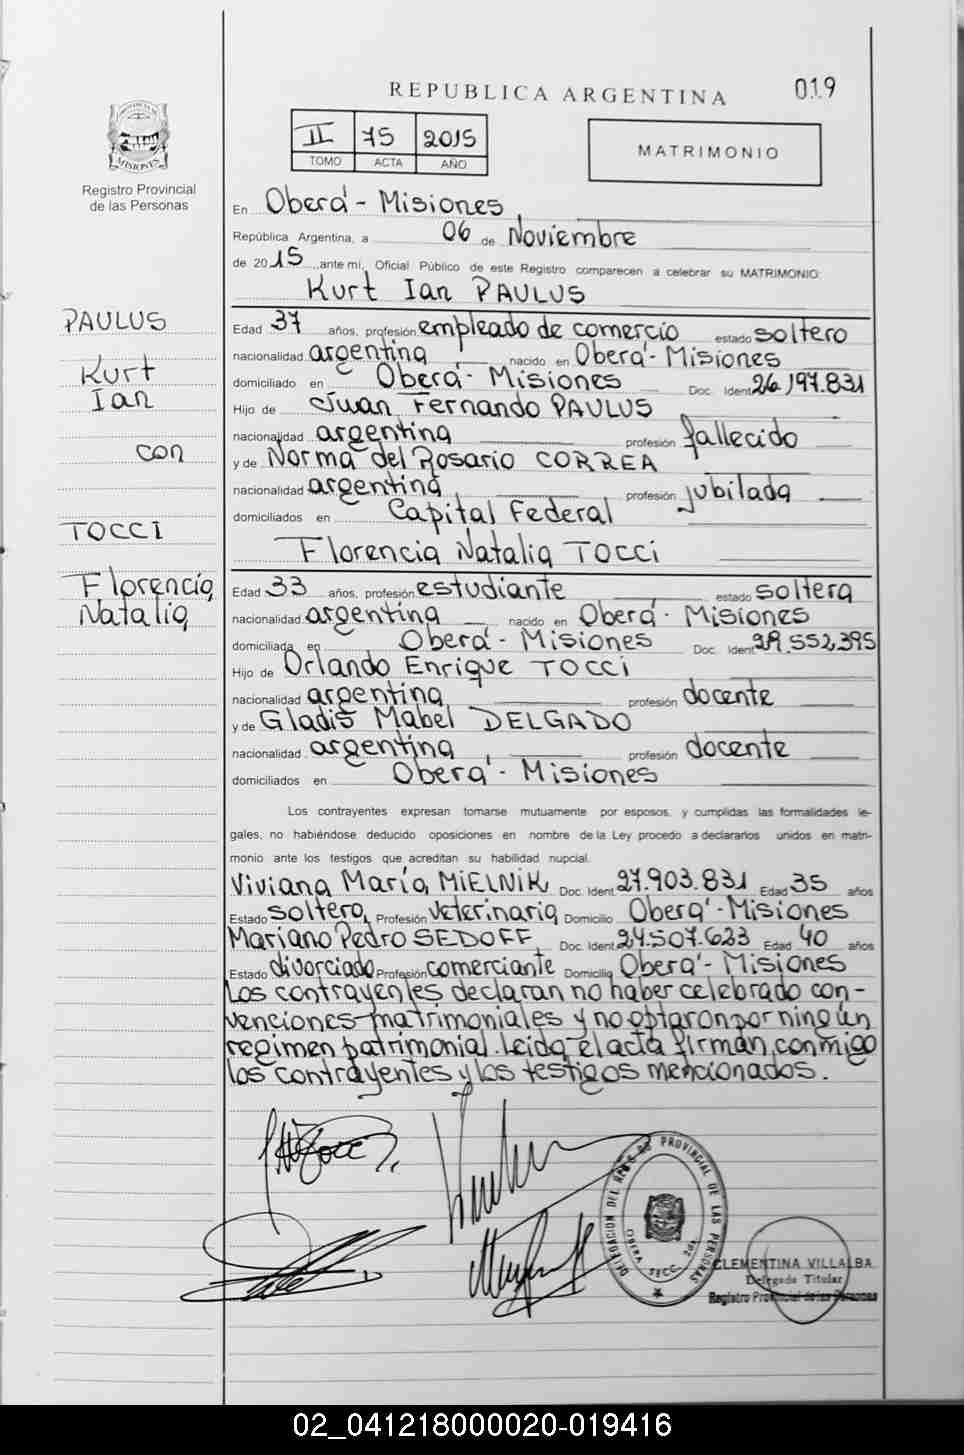 REPUBLICA ARGENTINA
019
PROVINCIA DE
MISIONES
II 75 2015
TOMO ACTA AÑO
MATRIMONIO
Registro Provincial
de las Personas
En Oberá - Misiones
República Argentina, a 06 de Noviembre
de 2015, ante mi, Oficial Público de este Registro comparecen a celebrar su MATRIMONIO:
Kurt Ian PAULUS
PAULUS
Kurt
Ian
con
TOCCI
Florencia
Natalia
Edad 37 años, profesión empleado de comercio estado soltero
nacionalidad argentina nacido en Oberá - Misiones
domiciliado en Oberá - Misiones Doc. Ident. 26.197.831
Hijo de Juan Fernando PAULUS
nacionalidad argentina profesión fallecido
y de Norma del Rosario CORREA
nacionalidad argentina profesión jubilada
domiciliados en Capital Federal
Florencia Natalia TOCCI
Edad 33 años, profesión estudiante estado soltera
nacionalidad argentina nacido en Oberá - Misiones
domiciliada en Oberá - Misiones Doc. Ident. 29.552.395
Hijo de Orlando Enrique TOCCI
nacionalidad argentina profesión docente
y de Gladis Mabel DELGADO
nacionalidad argentina profesión docente
domiciliados en Oberá - Misiones
Los contrayentes expresan tomarse mutuamente por esposos, y cumplidas las formalidades le-
gales, no habiéndose deducido oposiciones en nombre de la Ley procedo a declararlos unidos en matri-
monio ante los testigos que acreditan su habilidad nupcial.
Viviana María MIELNIK Doc. Ident. 27.903.831 Edad 35 años
Estado soltero, Profesión veterinaria Domicilio Oberá - Misiones
Mariano Pedro SEDOFF Doc. Ident. 24.507.623 Edad 40 años
Estado divorciado Profesión comerciante Domicilio Oberá - Misiones
Los contrayentes declaran no haber celebrado con-
venciones matrimoniales y no optaron por ningún
regimen patrimonial. Leida el acta firman conmigo
los contrayentes y los testigos mencionados.
DELEGACION DEL REGISTRO PROVINCIAL DE LAS PERSONAS
OBERA SECC. 2da.
CLEMENTINA VILLALBA
Delegada Titular
Registro Provincial de las Personas
02_041218000020-019416